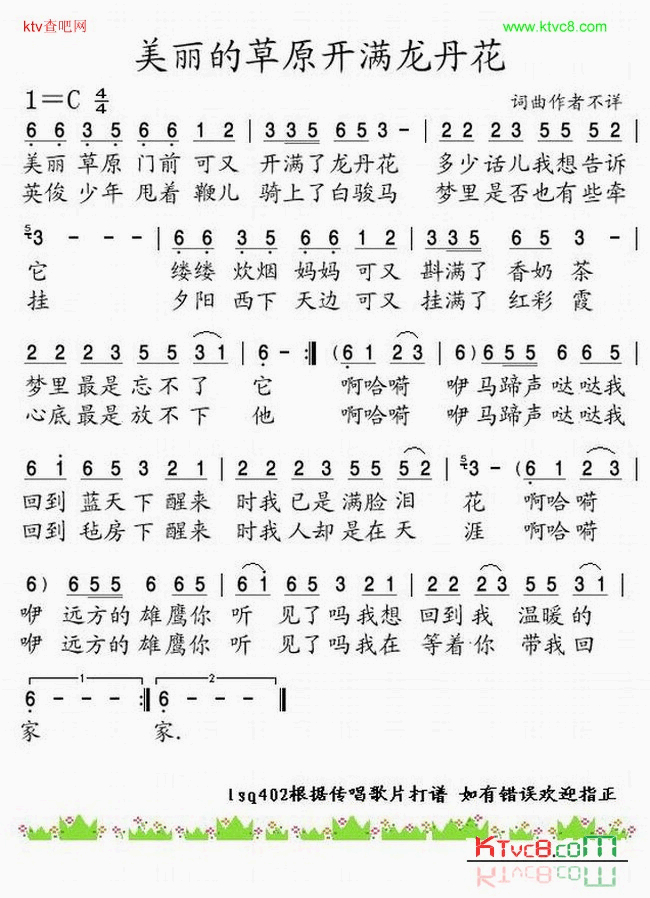 ktv查吧网 www.ktvc8.com
美丽的草原开满龙丹花
1=C 4/4 词曲作者不详
6 6 3 5 6 6 1 2 | 3 3 5 6 5 3 - | 2 2 2 3 5 5 5 2 |
美丽草原门前可又 开满了龙丹花 多少话儿我想告诉
英俊少年甩着鞭儿 骑上了白骏马 梦里是否也有些牵
5 3 - - - | 6 6 3 5 6 6 1 2 | 3 3 5 6 5 3 - |
它 缕缕炊烟妈妈可又 斟满了香奶茶
挂 夕阳西下天边可又 挂满了红彩霞
2 2 2 3 5 5 3 1 | 6 - :| (6 1 2 3 | 6) 6 5 5 6 6 5 |
梦里最是忘不了 它 啊哈嗬 咿马蹄声哒哒我
心底最是放不下 他 啊哈嗬 咿马蹄声哒哒我
6 i 6 5 3 2 1 | 2 2 3 5 5 5 2 | 5 3 - (6 1 2 3 |
回到蓝天下醒来 时我已是满脸泪 花 啊哈嗬
回到毡房下醒来 时我人却是在天 涯 啊哈嗬
6) 6 5 5 6 6 5 | 6 i 6 5 3 2 1 | 2 2 2 3 5 5 3 1 |
咿 远方的雄鹰你 听 见了吗我想 回到我 温暖的
咿 远方的雄鹰你 听 见了吗我在 等着你 带我回
1 2
6 - - - :| 6 - - - ||
家 家.
lsq402根据传唱歌片打谱 如有错误欢迎指正
KTvc8.com